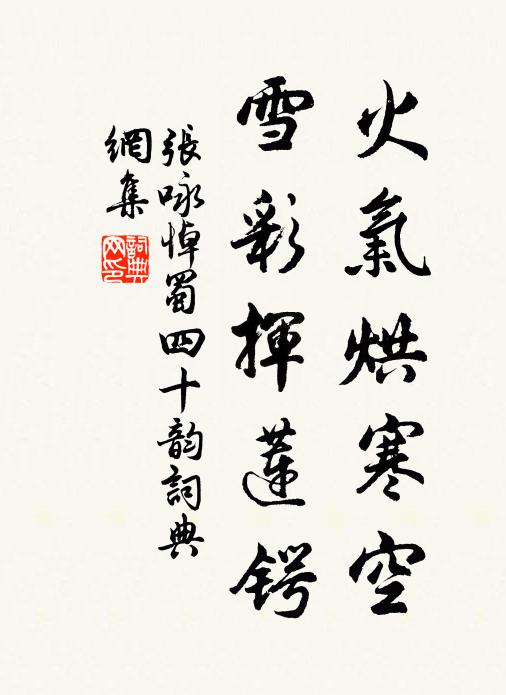 火氣烘寒空
雪彩揮蓮鍔
張咏悼蜀四十韵詞典
網集
詞典网印